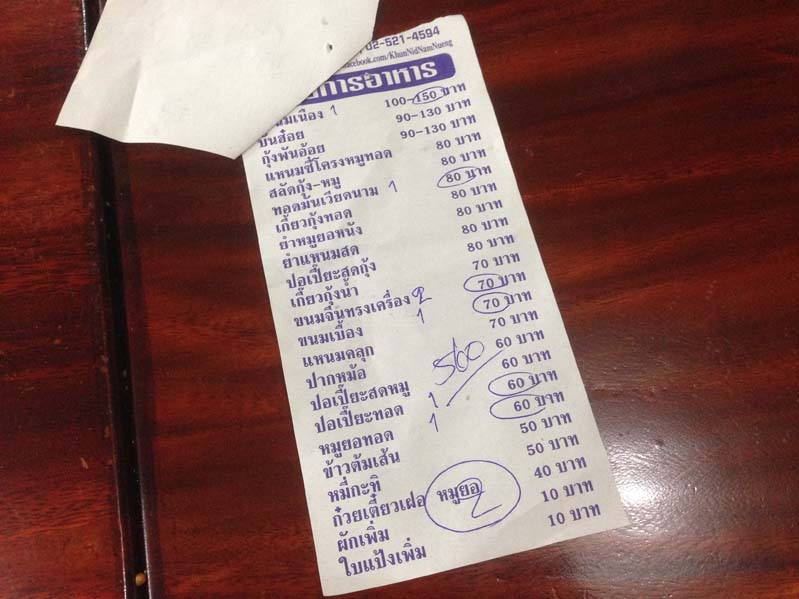 02-521-4594
facebook.com/KhunNidNamNueng
การอาหาร
นมเนือง 1 100-150 บาท
บันส๋อย 90-130 บาท
กุ้งพันอ้อย 90-130 บาท
แหนมซี่โครงหมูทอด 80 บาท
สลัดกุ้ง-หมู 80 บาท
ทอดมันเวียดนาม 1 80 บาท
เกี๊ยวกุ้งทอด 80 บาท
ยำหมูยอหนัง 80 บาท
ยำแหนมสด 80 บาท
ปอเปี๊ยะสดกุ้ง 80 บาท
เกี๊ยวกุ้งน้ำ 70 บาท
ขนมจีนทรงเครื่อง 2 70 บาท
ขนมเบื้อง 1 70 บาท
แหนมคลุก 70 บาท
ปากหม้อ 560 60 บาท
ปอเปี๊ยะสดหมู 60 บาท
ปอเปี๊ยะทอด 1 60 บาท
หมูยอทอด 1 60 บาท
ข้าวต้มเส้น 50 บาท
หมี่กะทิ 50 บาท
ก๋วยเตี๋ยวเฝอ หมูยอ 40 บาท
ผักเพิ่ม 2 10 บาท
ใบแป้งเพิ่ม 10 บาท